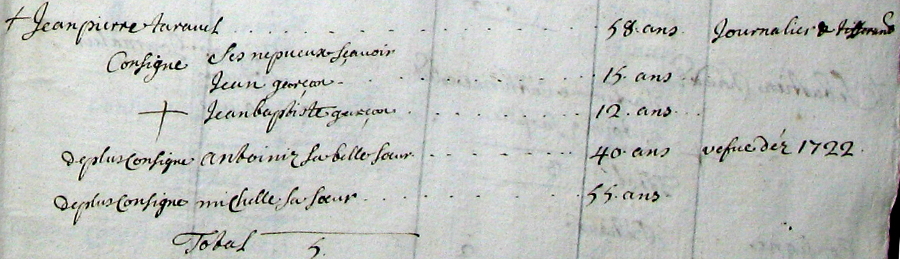 + Jeanpierre tarault . . . . . . . . . . 58 ans Journalier & tisserand
Consigne ses nepueux sçavoir
Jean garçon . . . . . . . . 15 ans
+ Jeanbaptiste garçon . . . . . . 12 ans
deplus Consigne antoiniz sa belle sœur . . . . . . 40 ans vefue déz 1722
deplus Consigne michelle sa sœur . . . . . . . . 55 ans
Total 5